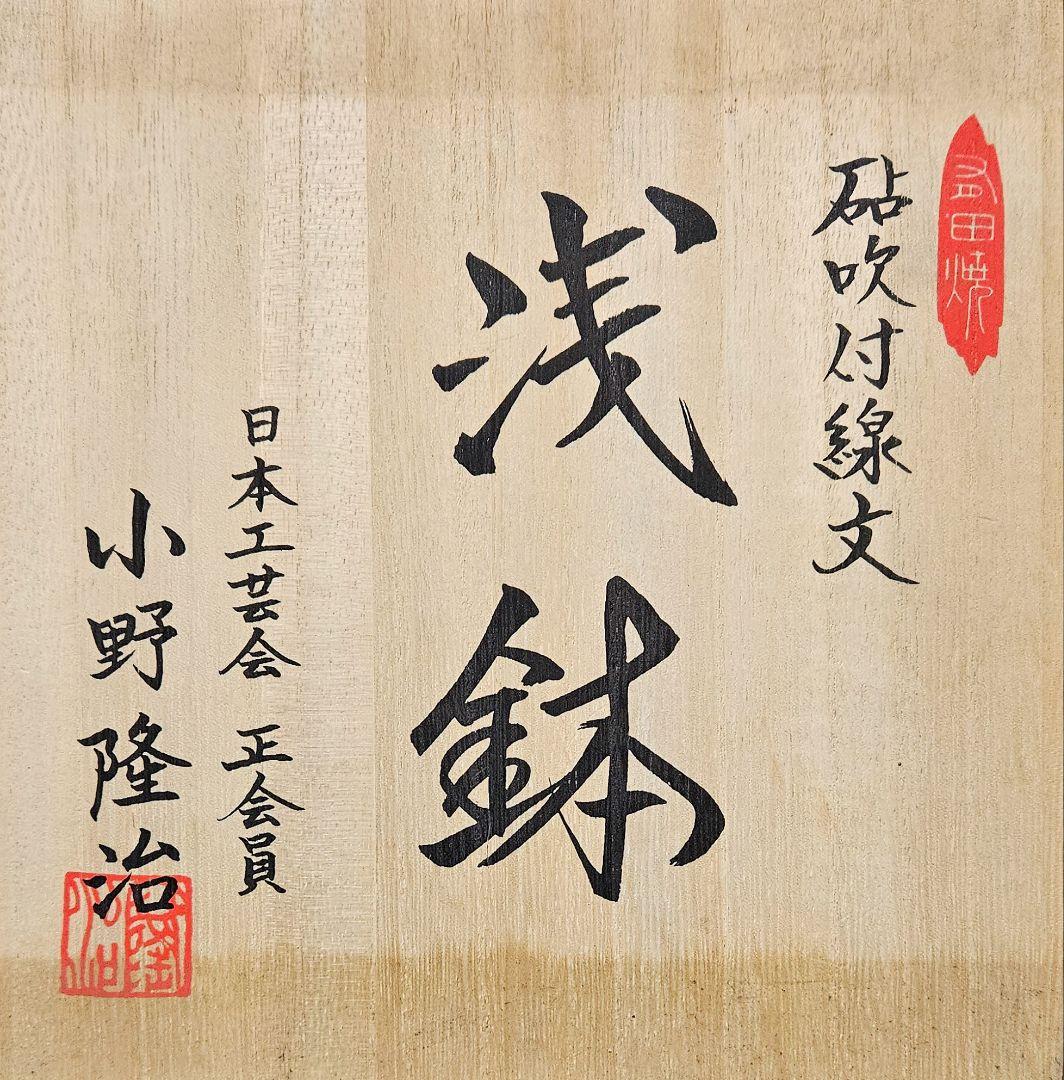 有田焼
砧吹付線文
浅鉢
日本工芸会 正会員
小野隆治
隆治